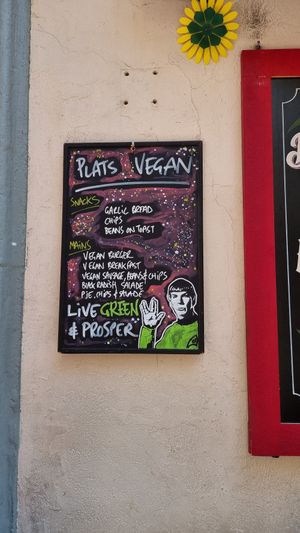 PLATS VEGAN
SNACKS
GARLIC BREAD
CHIPS
BEANS ON TOAST
MAINS
VEGAN BURGER
VEGAN BREAKFAST
VEGAN SAUSAGE, BEANS & CHIPS
BLACK RADISH SALADE
PIE, CHIPS & SALADE
LIVE GREEN
& PROSPER